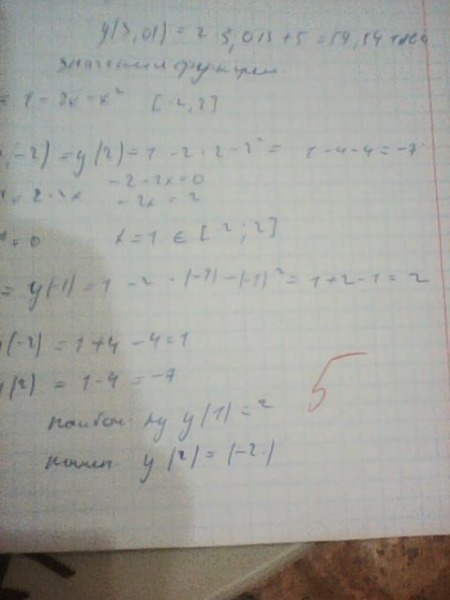 y(3,01) = 2 · 3,013 + 5 = 59,54
значения функции
= 1 - 2x - x² [-2,2]
, -2) = y(2) = 1 - 2 · 2 - 2² = 1 - 4 - 4 = -7
-2 - 2x = 0
-2x = 2
= 0 x = 1 ∈ [-2; 2]
= y(-1) = 1 - 2 · (-1) - (-1)² = 1 + 2 - 1 = 2
(-2) = 1 + 4 - 4 = 1
(2) = 1 - 4 = -7
5
y(1) = 2
y(2) = (-2)